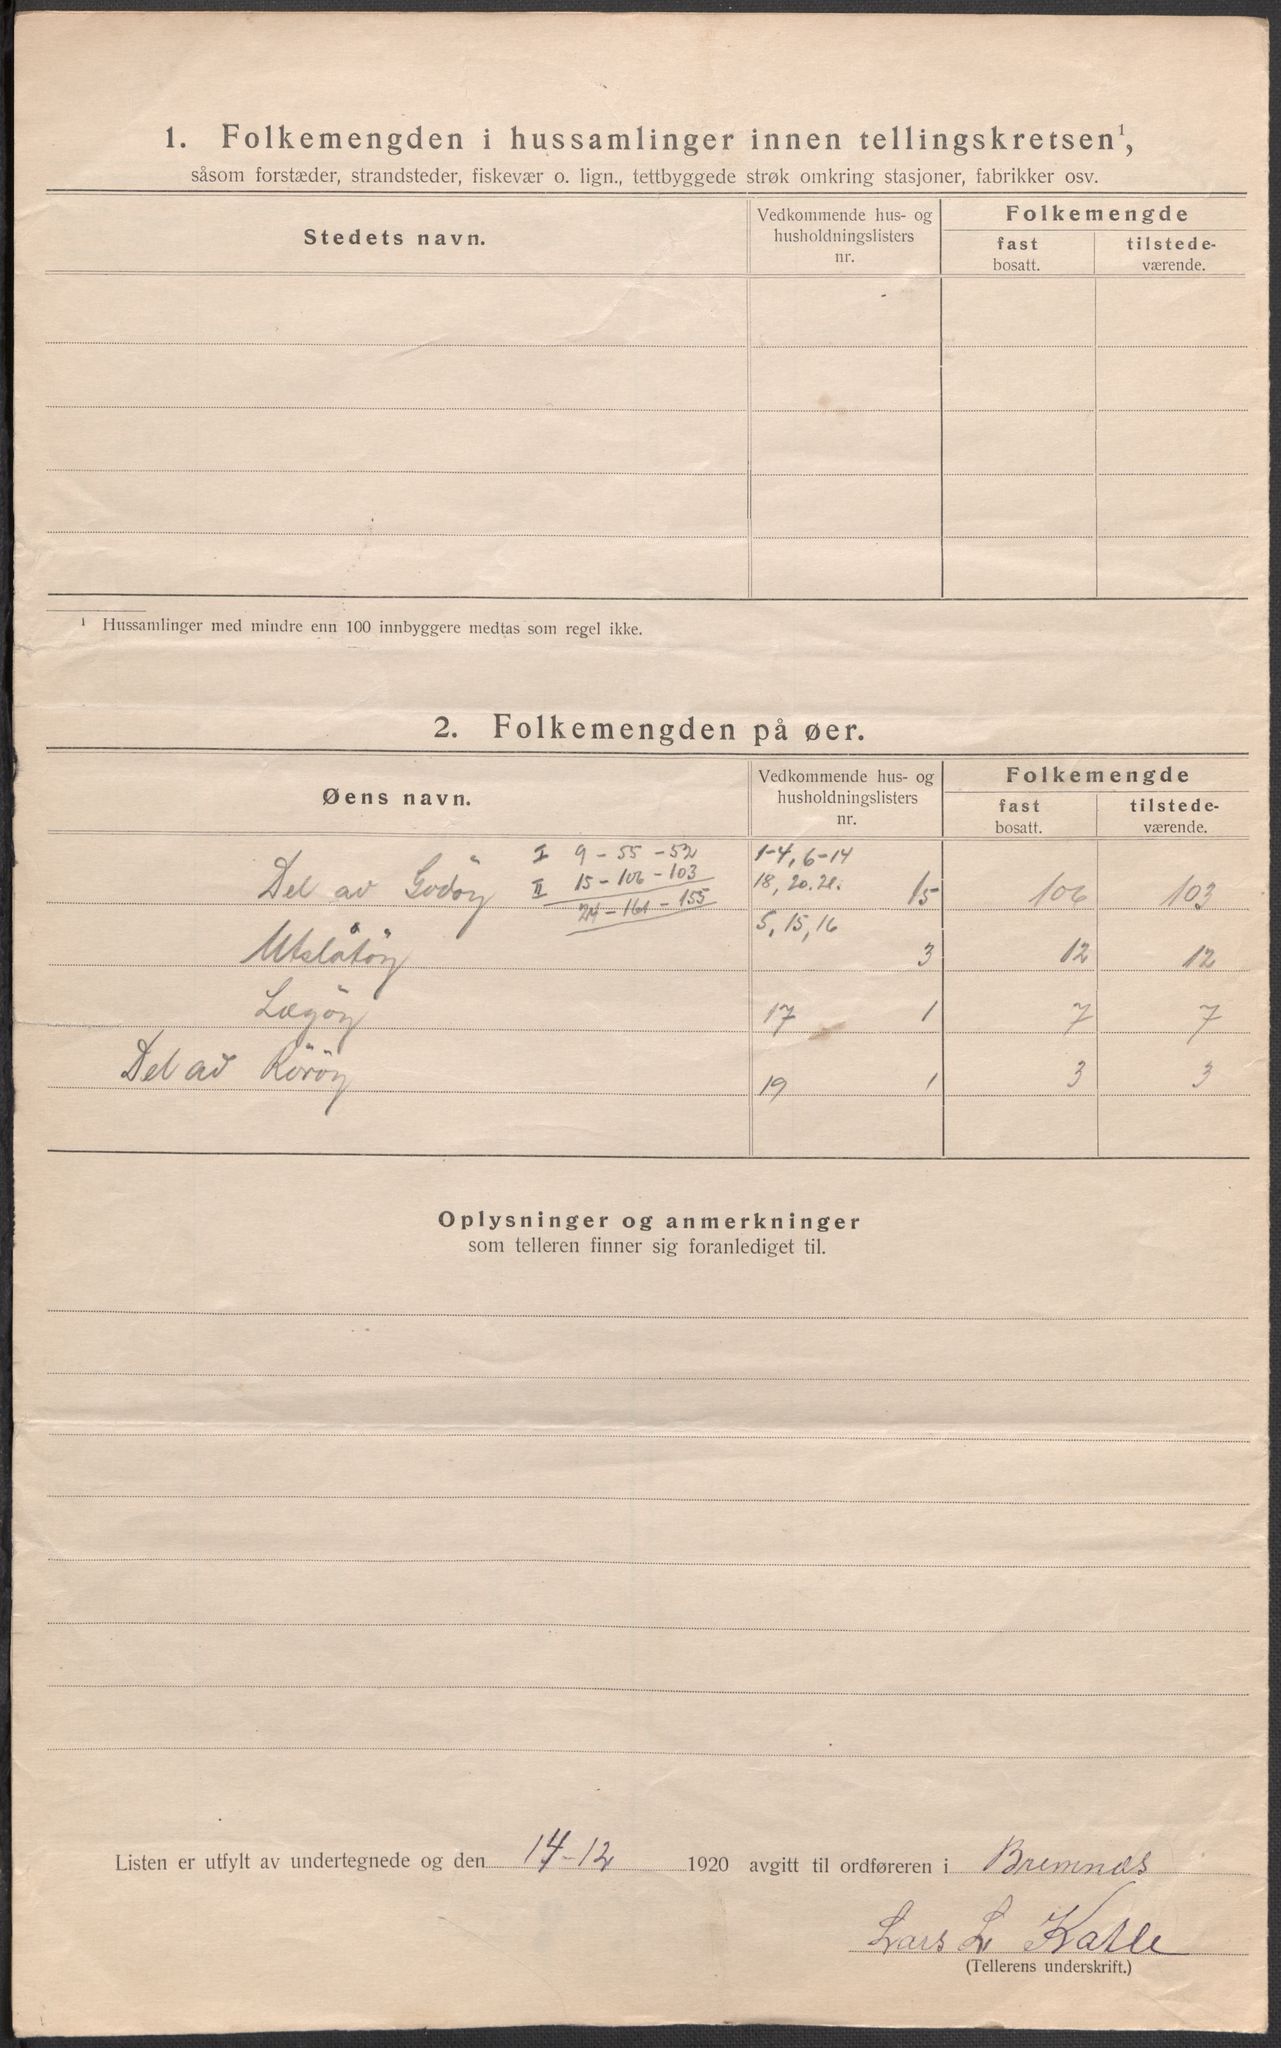 1. Folkemengden i hussamlinger innen tellingskretsen¹,
såsom forstæder, strandsteder, fiskevær o. lign., tettbyggede strøk omkring stasjoner, fabrikker osv.
Stedets navn.
Vedkommende hus- og husholdningslisters nr.
Folkemengde
fast bosatt.
tilstede-værende.
¹ Hussamlinger med mindre enn 100 innbyggere medtas som regel ikke.
2. Folkemengden på øer.
Øens navn.
Vedkommende hus- og husholdningslisters nr.
Folkemengde
fast bosatt.
tilstede-værende.
I 9 - 55 - 52
1-4, 6-14
Del av Godöy II 15 - 106 - 103 18, 20. 21. 15 106 103
24 - 161 - 155
5, 15, 16
Utslåtöy 3 12 12
Lægöy 17 1 7 7
Del av Röröy 19 1 3 3
Oplysninger og anmerkninger
som telleren finner sig foranlediget til.
Listen er utfylt av undertegnede og den 14-12 1920 avgitt til ordføreren i Bremnes
Lars L Katle
(Tellerens underskrift.)